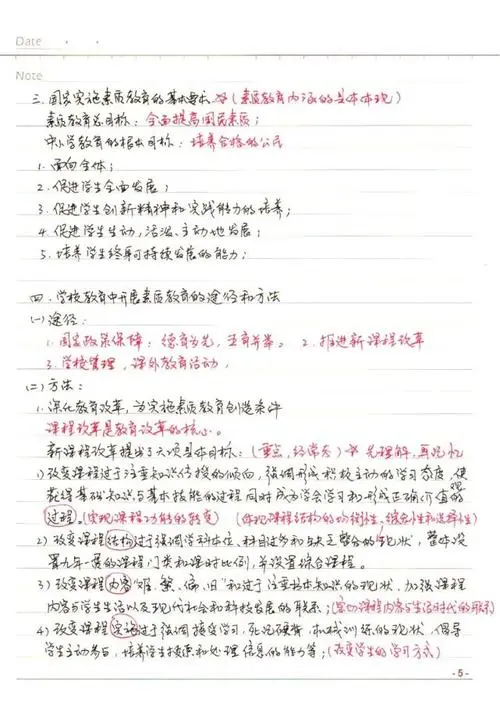 Date
Note
三.国家实施素质教育的基本要求 (素质教育内涵的具体体现)
素质教育总目标:全面提高国民素质;
中小学教育的根本目标:培养合格的公民
1.面向全体;
2.促进学生全面发展;
3.促进学生创新精神和实践能力的培养;
4.促进学生生动,活泼、主动地发展;
5.培养学生终身可持续发展的能力;
四.学校教育中开展素质教育的途径和方法
(一)途径:
1.国家政策保障:德育为先,五育并举。 2.推进新课程改革
3.学校管理,课外教育活动;
(二)方法:
1.深化教育改革,为实施素质教育创造条件
课程改革是教育改革的核心。
新课程改革提出了六项具体目标:(重点,经常考) 先理解,再记忆
1)改变课程过于注重知识传授的倾向,强调形成积极主动的学习态度,使
获得基础知识与基本技能的过程同时成为学会学习和形成正确价值的
过程。(实现课程功能的转变) (体现课程结构的均衡性,综合性和选择性)
2)改变课程结构过于强调学科本位、科目过多和缺乏整合的现状,整体设
置九年一贯的课程门类和课时比例,并设置综合课程。
3)改变课程内容"难、繁、偏、旧"和过于注重书本知识的现状,加强课程
内容与学生生活以及现代社会和科技发展的联系;(密切课程内容与生活时代的联系)
4)改变课程实施过于强调接受学习,死记硬背,机械训练的现状,倡导
学生主动参与,培养学生搜索和处理信息的能力等;(改变学生的学习方式)
- 5 -